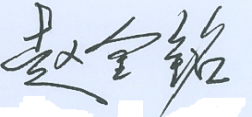 赵金铭